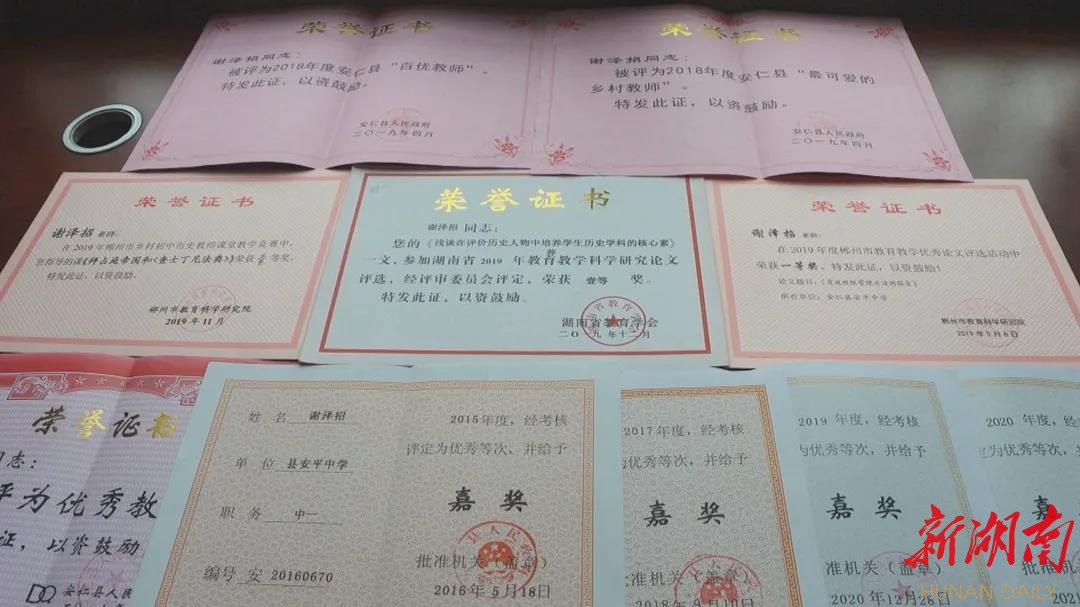 荣誉证书
谢泽招同志：
被评为2018年度安仁县“百优教师”。
特发此证，以资鼓励。
安仁县人民政府
二〇一九年四月
荣誉证书
谢泽招同志：
被评为2018年度安仁县“最可爱的
乡村教师”。
特发此证，以资鼓励。
安仁县人民政府
二〇一九年四月
荣誉证书
谢泽招 老师：
在 2019 年郴州市乡村初中历史教师课堂教学竞赛中，
您指导的课《拜占庭帝国和《查士丁尼法典》》荣获 等奖，
特发此证，以资鼓励。
郴州市教育科学研究院
2019 年 11 月
荣誉证书
谢泽招 同志：
您的《浅谈在评价历史人物中培养学生历史学科的核心素养》
一文，参加湖南省 2019 年教育教学科学研究论文
评选，经评审委员会评定，荣获 壹等 奖。
特发此证，以资鼓励。
湖南省教育学会
二〇一九年十二月
荣誉证书
谢泽招 老师：
在 2019 年度郴州市教育教学优秀论文评选活动中
荣获一等奖，特发此证，以资鼓励！
论文题目：《有效班级管理方法的探索》
所在单位：安仁县安平中学
郴州市教育科学研究院
2019 年 5 月 6 日
荣誉证书
同志：
评为优秀教
证，以资鼓励
安仁县人民
姓名 谢泽招
单位 县安平中学
职务 中一
编号 安 20160670
2015 年度，经考核
评定为优秀等次，并给予
嘉奖
批准机关（盖章）
2016 年 5 月 18 日
2017 年度，经考核
为优秀等次，并给予
嘉奖
批准机关（盖章）
2018 年 9 月 10 日
2019 年度，经考核
为优秀等次，并给予
嘉奖
准机关（盖章）
2020 年 12 月 28 日
2020 年度，
定为优秀等次
嘉
批准机关
2021
新湖南
HUNAN DAILY